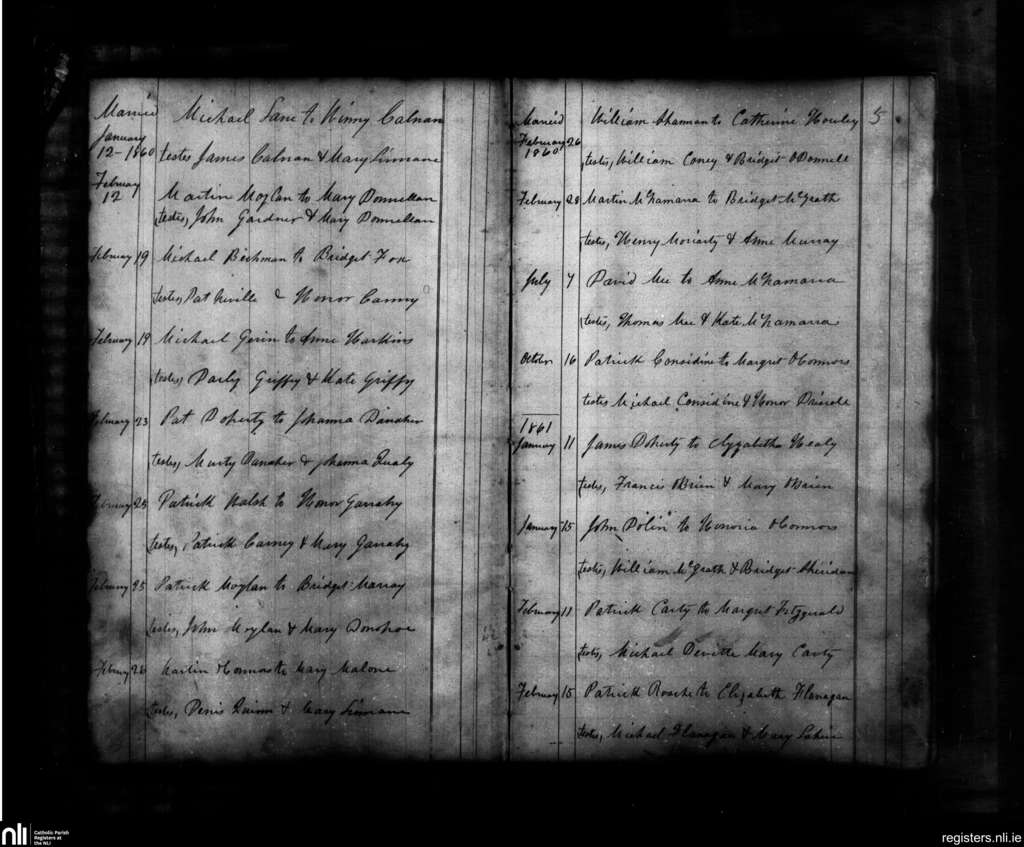 Married
January
12-1860
Michael Lane to Winny Calnan
testes James Calnan & Mary Linnane
February
12
Martin Moylan to Mary Donnellan
testes, John Gardner & Mary Donnellan
February 19 Michael Bechman to Bridget Fox
testes, Pat Neville & Honor Canny
February 19 Michael Gerin to Anne Harkins
testes, Darly Griffy & Kate Griffy
February 23 Pat Doherty to Johanna Danaher
testes, Murty Danaher & Johanna Quealy
February 25 Patrick Walsh to Honor Garrahy
testes, Patrick Carney & Mary Garrahy
February 25 Patrick Moylan to Bridget Murray
testes, John Moylan & Mary Donohoe
February 26 Martin to Mary Malone
testes, Denis Quinn & Mary Linnane
5
Married
February 26
1860
William to Catherine Howley
testes, William Coney & Bridget ODonnell
February 28 Martin McNamara to Bridget McGrath
testes, Henry Moriarty & Anne Murray
July 7 David Mee to Anne McNamara
testes, Thomas Mee & Kate McNamara
October 16 Patrick Considine to Margret OConnors
testes Michael Considine & Honor
1861
January 11 James Doherty to Healy
testes, Francis OBrien & Mary OBrien
January 15 John "Polin" to Honoria OConnors
testes, William McGrath & Bridget Sheridan
February 11 Patrick Carty to Margret Fitzgerald
testes, Michael Devitte Mary Carty
February 15 Patrick Roache to Elizabeth Flanagan
testes, Michael Flanagan & Mary
nli
Catholic Parish
Registers at
the NLI
registers.nli.ie